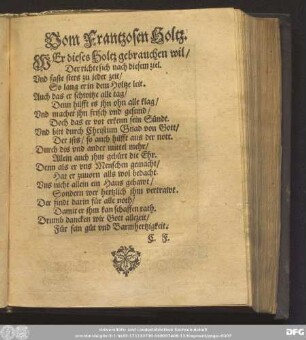 Vom Frantzosen Holtz.
WEr dieses Holtz gebrauchen wil/
Der richte sich nach diesem ziel.
Vnd faste stets zu jeder zeit/
So lang er in dem Holtze leit.
Auch das er schwitze alle tag/
Denn hilfft es jhn ohn alle klag/
Vnd machet jhn frisch vnd gesund/
Doch das er vor erkenn sein Sünde.
Vnd bitt durch Christum Gnad von Gott/
Der ists/ so auch hilfft aus der nott.
Durch dis vnd ander mittel mehr/
Allein auch jhm gebürt die Ehr.
Denn als er vns Menschen gemacht/
Hat er zuuorn alls wol bedacht.
Vns nicht allein ein Haus gebawt/
Sondern wer hertzlich jhm vertrawt.
Der findt darin für alle noth/
Damit er jhm kan schaffen rath.
Drumb dancken wir Gott allezeit/
Für sein güt vnd Barmhertzigkeit.
C. F.
DFG